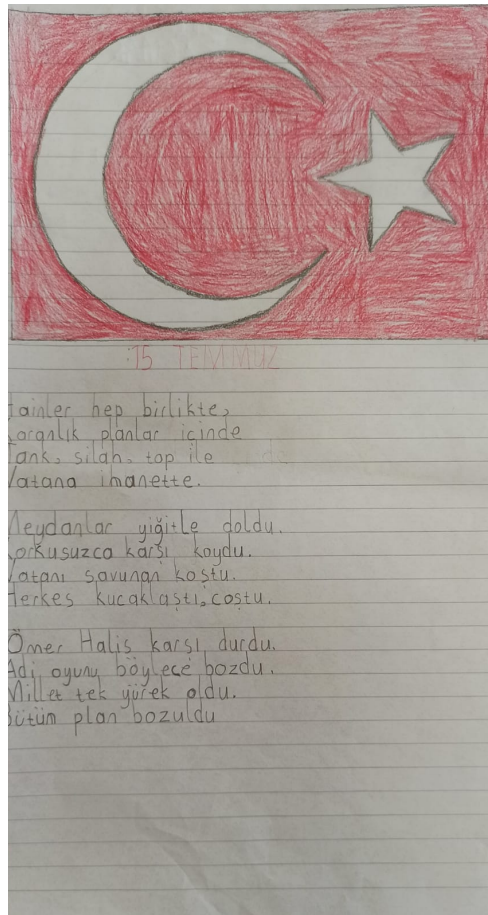 15 TEMMUZ
Hainler hep birlikte,
Karanlık planlar içinde
Tank, silah, top ile
Vatana ihanette.
Meydanlar yiğitle doldu.
Korkusuzca karşı koydu.
Vatanı savunan koştu.
Herkes kucaklaştı, coştu.
Ömer Halis karşı durdu.
Adi oyunu böylece bozdu.
Millet tek yürek oldu.
Bütüm plan bozuldu